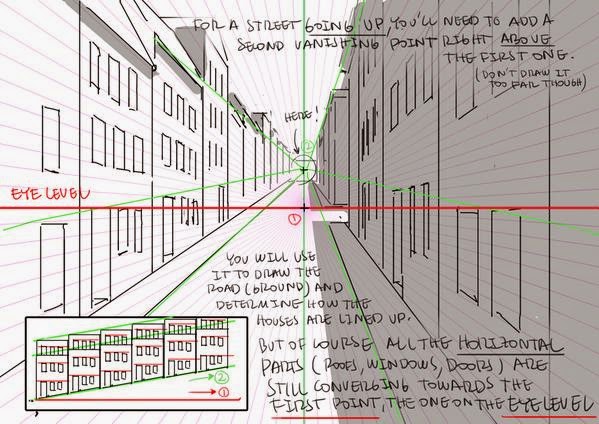 FOR A STREET GOING UP, YOU'LL NEED TO ADD A
SECOND VANISHING POINT RIGHT ABOVE
THE FIRST ONE.
(DON'T DRAW IT
TOO FAR THOUGH)
HERE!
②
EYE LEVEL
①
YOU WILL USE
IT TO DRAW THE
ROAD (GROUND) AND
DETERMINE HOW THE
HOUSES ARE LINED UP.
BUT OF COURSE ALL THE HORIZONTAL
PARTS (ROOFS, WINDOWS, DOORS) ARE
STILL CONVERGING TOWARDS THE
FIRST POINT, THE ONE ON THE EYE LEVEL
②
①